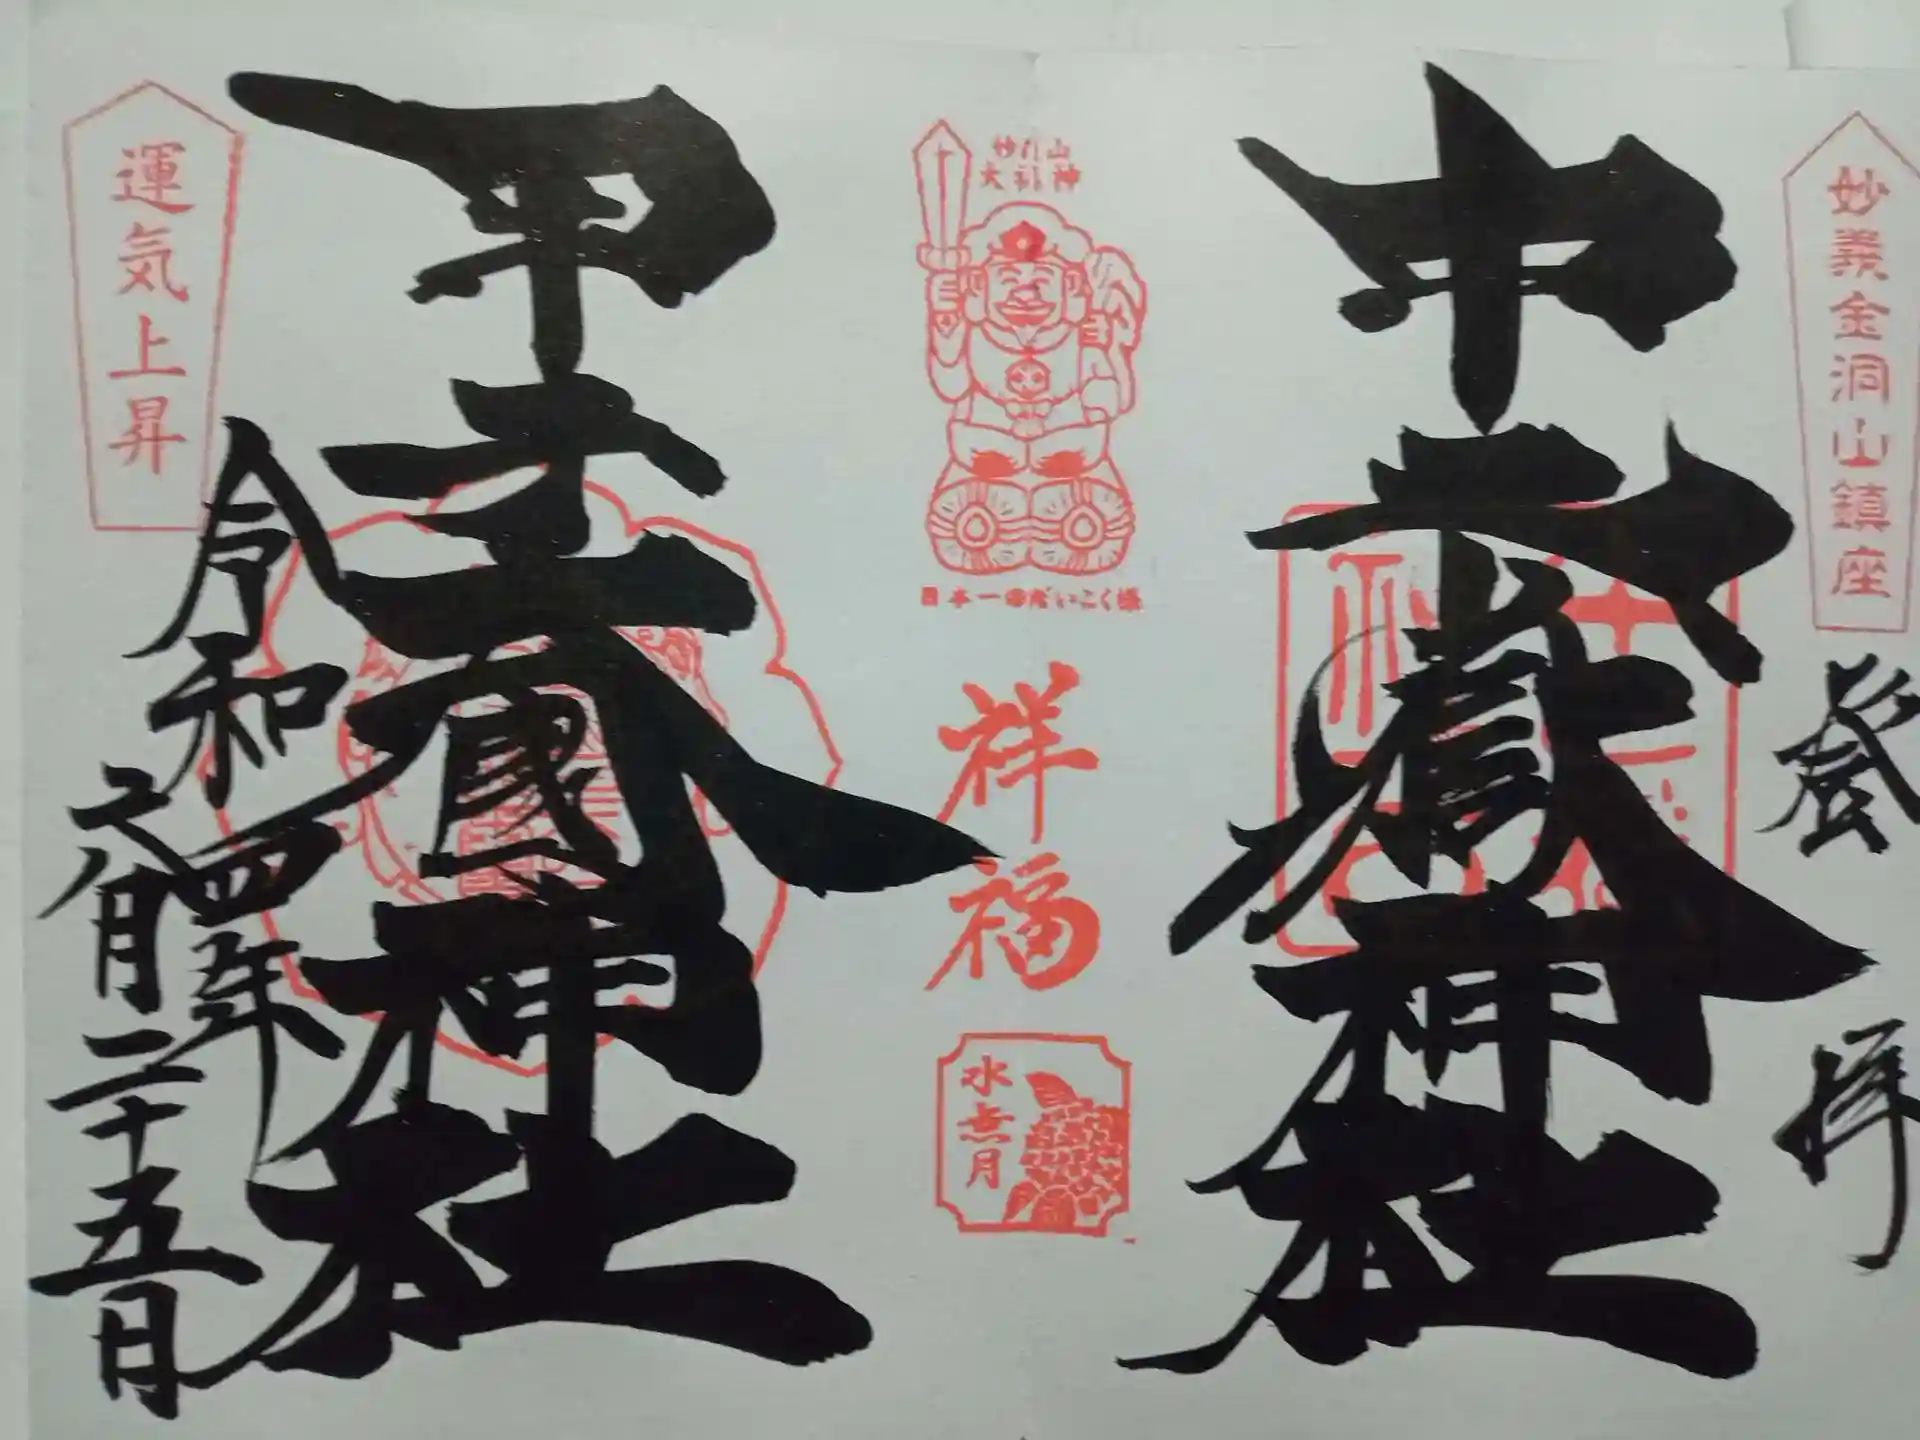 妙義金洞山鎮座
登拝
中之嶽神社
妙義山
日本一のだいこく様
祥福
水無月
甲子大國神社
令和四年
六月二十五日
運気上昇